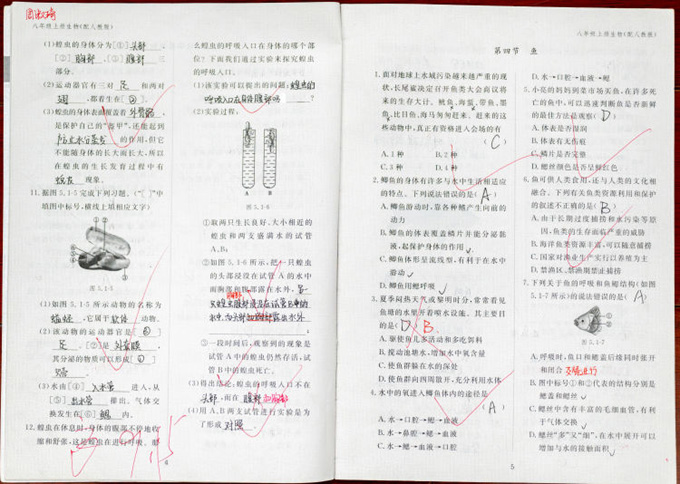 八年级上册生物(配人教版)
(1)蝗虫的身体分为[①]头部、
[②]胸部、[③]腹部三
部分。
(2)运动器官有三对足和两对
翅,都着生在[②]。
(3)蝗虫的身体表面覆盖着外骨骼,
是保护自己的“盔甲”,还能起到
防止水分蒸发的作用,但它
不能随身体的长大而长大,所以
在蝗虫的生长发育过程中有
蜕皮现象。
11.据图5.1-5完成下列习题。(“[ ]”中
填图中标号,横线上填相应文字)
图5.1-5
(1)如图5.1-5所示动物的名称为
,它属于软体动物。
(2)该动物的运动器官是[④]
足,[②]是外套膜,
其分泌物质可以形成[①]
(3)水由[④]入水管进入,从
[⑤]出水管排出。气体交
换发生在[⑥]鳃内。
12.蝗虫在休息时,身体的腹部不停地收
缩和舒张,这是蝗虫在进行呼吸。那
4
么蝗虫的呼吸入口在身体的哪个部
位?下面我们通过实验来探究蝗虫
的呼吸入口。
(1)该实验可以提出的问题:蝗虫的
呼吸入口在腹部吗?
(2)实验过程:
A B
图5.1-6
①取两只生长良好、大小相近的
蝗虫和两支盛满水的试管
A、B;
②如图5.1-6所示,把一只蝗虫
的头部浸没在试管A的水中
而胸部和腹部露在水外,另一
只蝗虫腹部浸没在试管B中的
水中,
③一段时间后,观察到的现象是
试管A中的蝗虫仍然存活,试
管B中的死亡。
(3)得出结论:蝗虫的呼吸口不在
头部,而在腹部
(4)用A、B两支试管进行实验是为
了形成对照。
八年级上册生物(配人教版)
第四节 鱼
1.面对地球上水域污染越来越严重的现
状,长尾鲨决定召开鱼类大会商议将
来的生存大计。鱿鱼、海鲨、带鱼、墨
鱼、比目鱼、海马匆匆赶来。赶来的这
些动物中,真正有资格进入会场的有
(C)
A.5种 B.2种
C.3种 D.4种
2.鲫鱼的身体有许多与水中生活相适应
的特点。下列说法错误的是(A)
A.鲫鱼游动时,靠各种鳍产生向前的
动力
B.鲫鱼的体表覆盖鳞片并能分泌黏
液,起保护身体的作用
C.鲫鱼体形呈流线型,有利于在水中
游动
D.鲫鱼用鳃呼吸
3.夏季闷热天气或黎明时分,常常看见
鱼塘的水里开着喷水设施,其主要目
的是(D)B.
A.驱使鱼儿多活动和多吃饵料
B.搅动池塘水,增加水中氧含量
C.使鱼群躲在水的深处
D.使鱼群向四周散开,充分利用水体
4.水中的氧进入鲫鱼体内的途径是
(A)
A.水→口腔→鳃→血液
B.水→鼻腔→鳃→血液
C.水→鳃→血液→口腔
D.水→口腔→血液→鳃
5.小亮的妈妈到菜市场买鱼,在许多死
亡的鱼中,可以迅速判断鱼是否新鲜
的最佳方法是观察(D)
A.体表是否湿润
B.体表有无伤痕
C.鳞片是否完整
D.鳃丝颜色是否呈鲜红色
6.鱼可供人类食用,还与人类的文化相
融合。下列有关鱼类资源利用和保护
的叙述不正确的是(B)
A.由于长期过度捕捞和水污染等原
因,鱼类的生存面临严重的威胁
B.海洋鱼类资源丰富,可以随意捕捞
C.国家对渔业生产实行以养殖为主
D.禁渔区、禁渔期禁止捕捞
7.下列关于鱼的呼吸和鱼鳃结构(如图
5.1-7所示)的说法错误的是(A)
图5.1-7
A.呼吸时,鱼口和鳃盖后缘同时张开
和闭合 交替进行
B.图中标号①和②代表的结构分别是
鳃盖和鳃丝
C.鳃丝中含有丰富的毛细血管,有利
于气体交换
D.鳃丝“多”又“细”,在水中展开可以
增加与水的接触面积
5